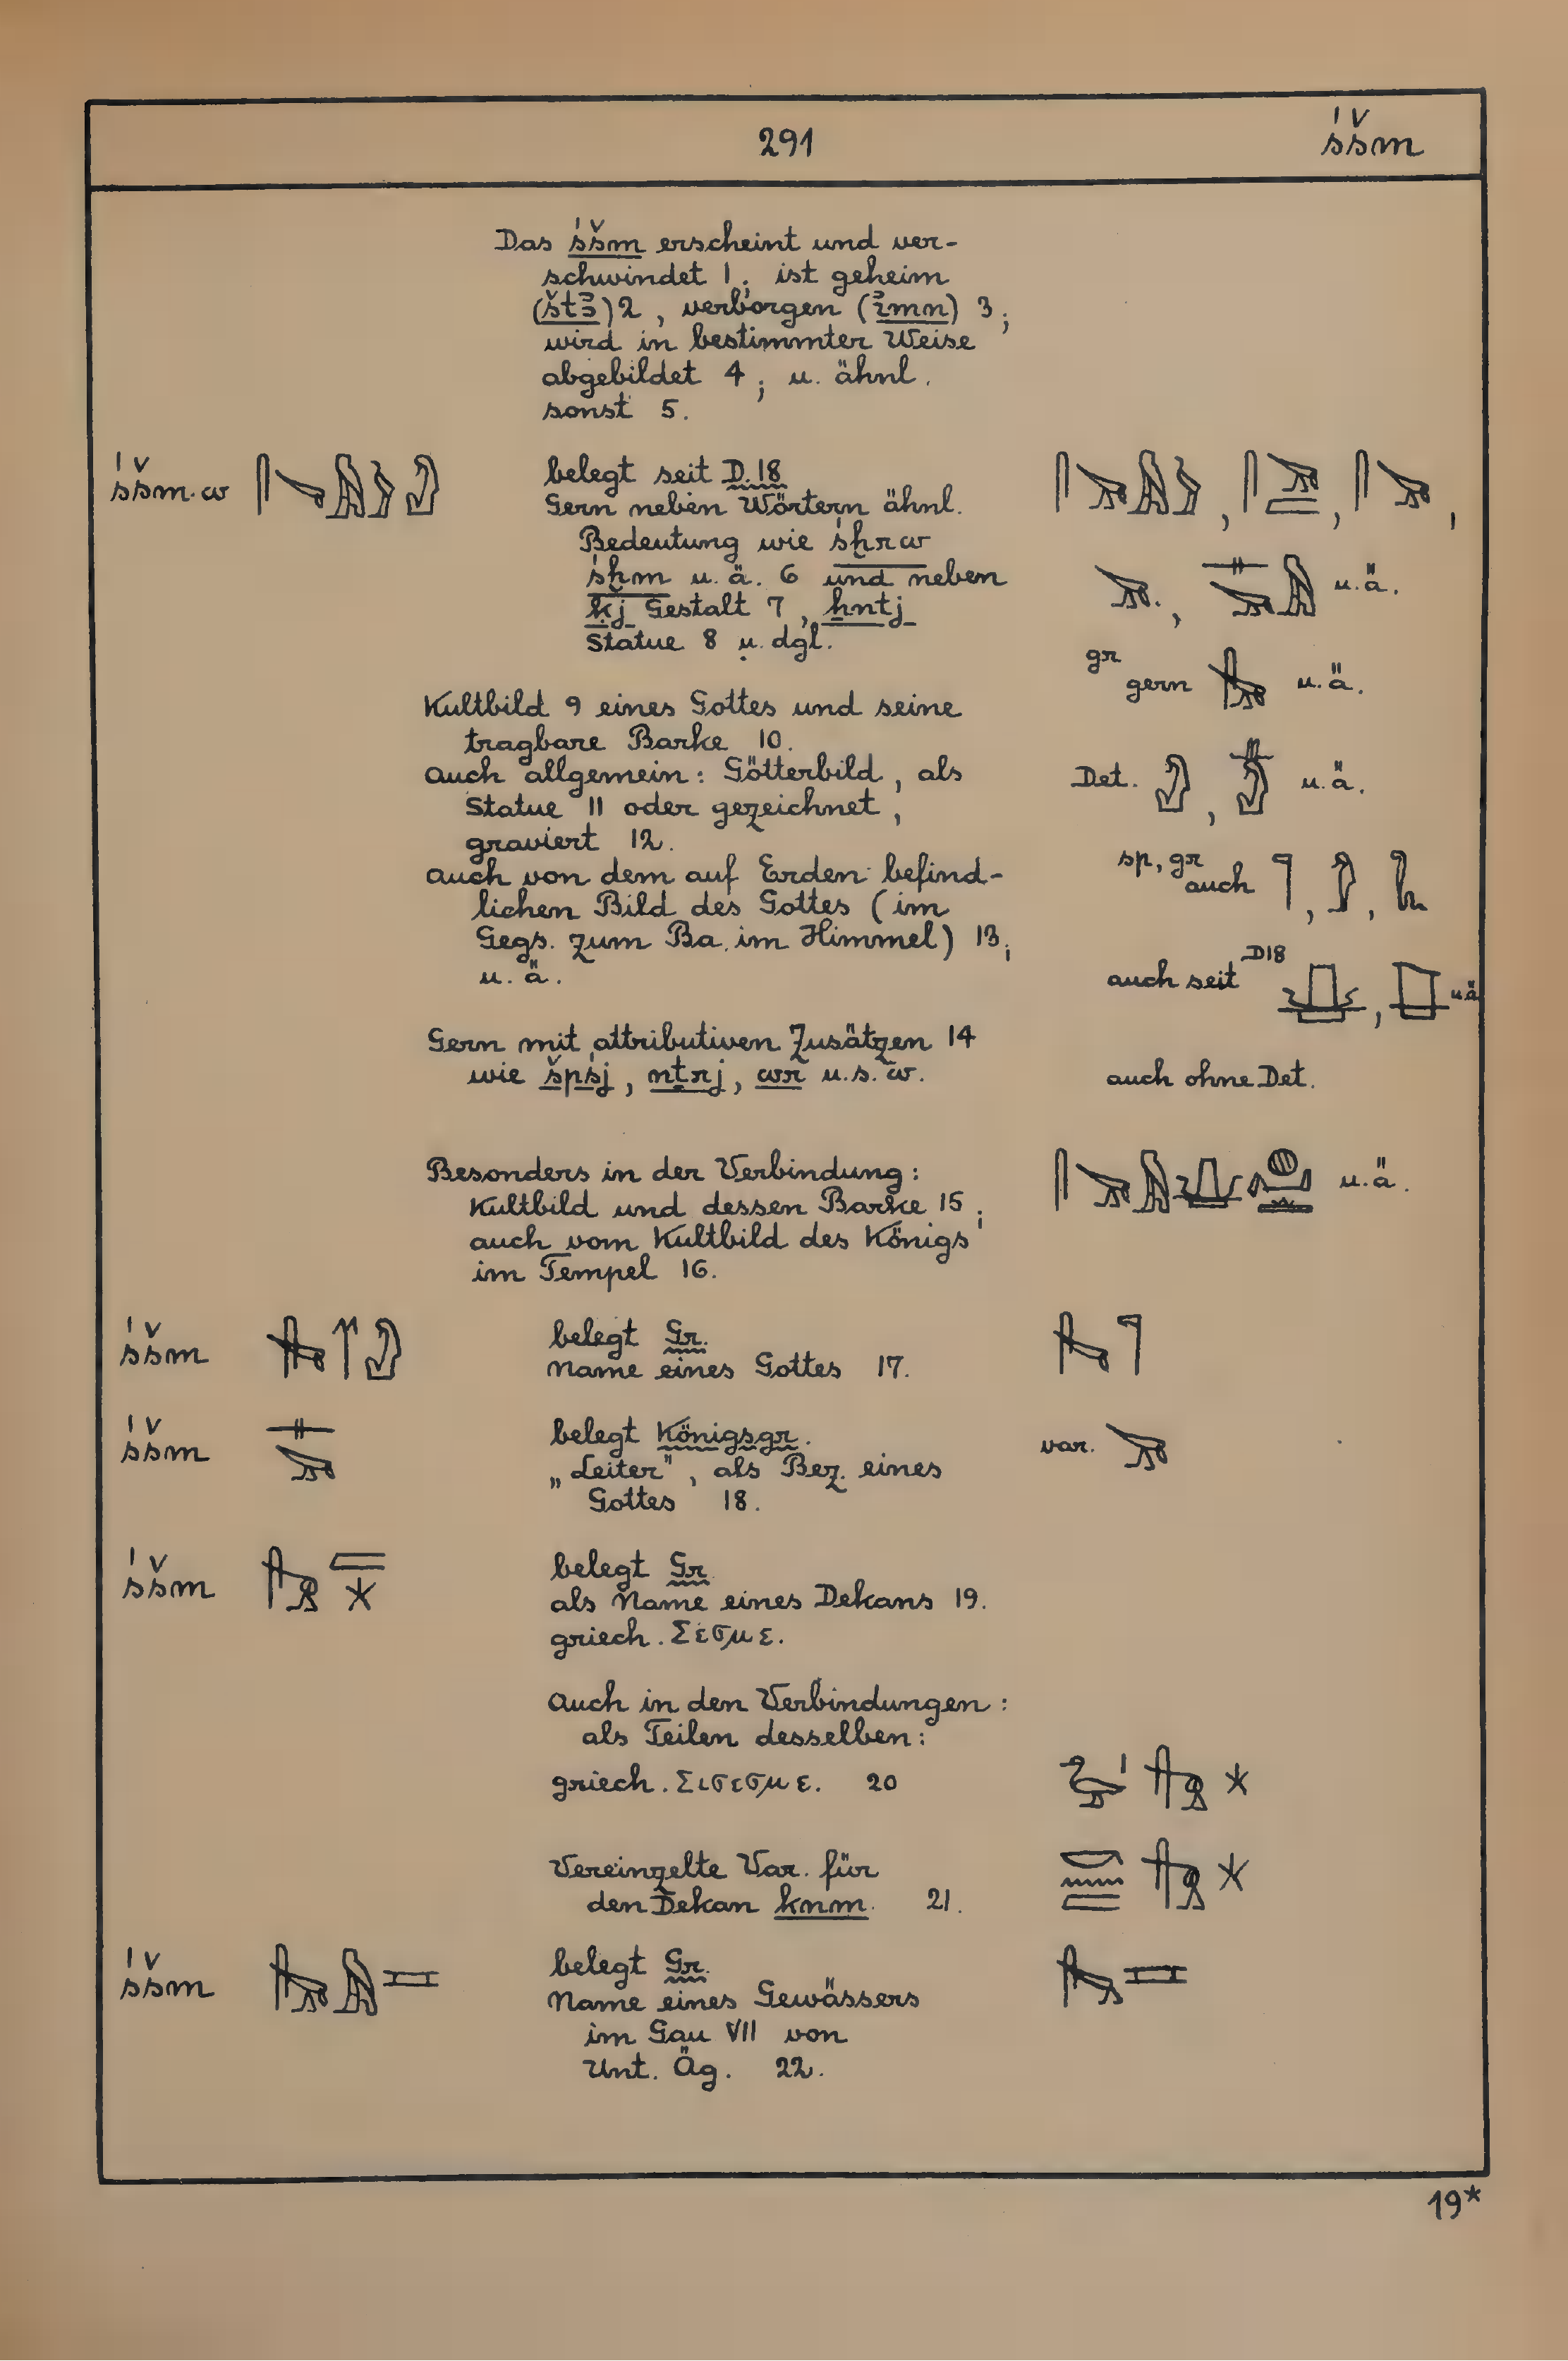 291
śšm
Das śšm erscheint und ver-
schwindet 1; ist geheim
(štꜣ) 2, verborgen (ı͗mn) 3;
wird in bestimmter Weise
abgebildet 4; u. ähnl.
sonst 5.
śšm.w
belegt seit D. 18
Gern neben Wörtern ähnl.
Bedeutung wie śḫrw
śḫm u. ä. 6 und neben
ḳj Gestalt 7, ḥntj
Statue 8 u. dgl.
u. ä.
gr
gern u. ä.
Kultbild 9 eines Gottes und seine
tragbare Barke 10.
Auch allgemein: Götterbild, als
Statue 11 oder gezeichnet,
graviert 12.
Det. u. ä.
Auch von dem auf Erden befind-
lichen Bild des Gottes (im
Gegs. zum Ba im Himmel) 13;
u. ä.
sp, gr
auch
auch seit D18 u ä
Gern mit attributiven Zusätzen 14
wie špśj, nṯrj, wr u.s.w.
auch ohne Det.
Besonders in der Verbindung:
Kultbild und dessen Barke 15;
auch vom Kultbild des Königs
im Tempel 16.
u. ä.
śšm
belegt Gr.
Name eines Gottes 17.
śšm
belegt Königsgr.
„Leiter", als Bez. eines
Gottes 18.
var.
śšm
belegt Gr.
als Name eines Dekans 19.
griech. Σεσμε.
Auch in den Verbindungen:
als Teilen desselben:
griech. Σισεσμε. 20
Vereinzelte Var. für
den Dekan knm. 21.
śšm
belegt Gr.
Name eines Gewässers
im Gau VII von
Unt. Äg. 22.
19*